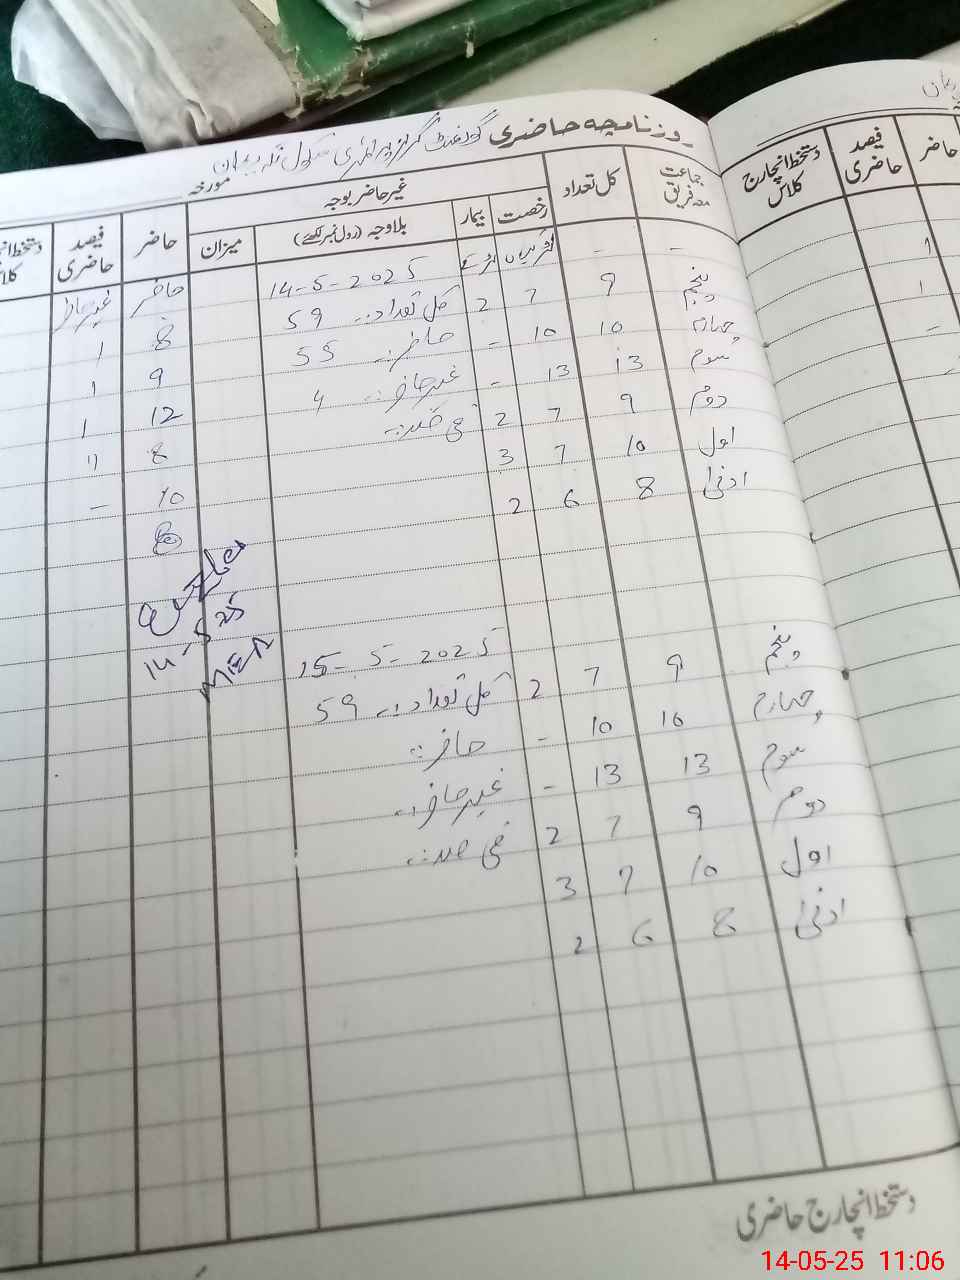 روزنامچہ حاضری گورنمنٹ گرلز پرائمری سکول
مورخہ
جماعت معہ فریق کل تعداد غیر حاضر بوجہ حاضر فیصد حاضری دستخط انچارج کلاس
رخصت بیمار بلاوجہ (رول نمبر لکھئے) میزان
- - لڑکیاں لڑکے 14-5-2025 حاضر غیر حاضر
پنجم 9 7 2 کل تعداد:۔ 59 8 1
چہارم 10 10 - حاضر:۔ 55 9 1
سوم 13 13 - غیر حاضر:۔ 4 12 1
دوم 9 7 2 فی صد:۔ 8 11
اول 10 7 3 10 -
ادنیٰ 8 6 2 8
14-5-25
MEA
15-5-2025
پنجم 9 7 2 کل تعداد:۔ 59
چہارم 10 10 - حاضر:۔
سوم 13 13 - غیر حاضر:۔
دوم 9 7 2 فی صد:۔
اول 10 7 3
ادنیٰ 8 6 2
دستخط انچارج حاضری
حاضر فیصد حاضری دستخط انچارج کلاس
1
1
-
14-05-25 11:06